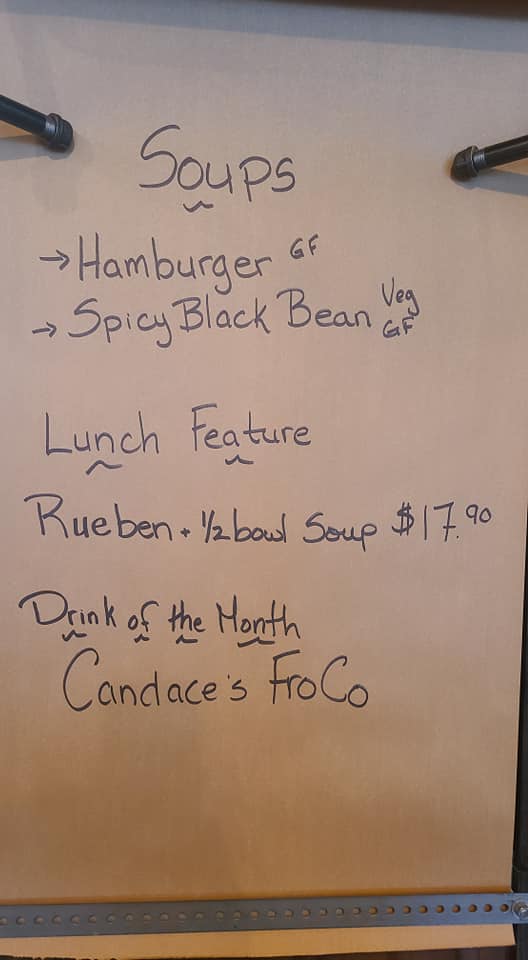 Soups
→ Hamburger GF
→ Spicy Black Bean Veg GF
Lunch Feature
Rueben + 1/2 bowl Soup $17.90
Drink of the Month
Candace's FroCo